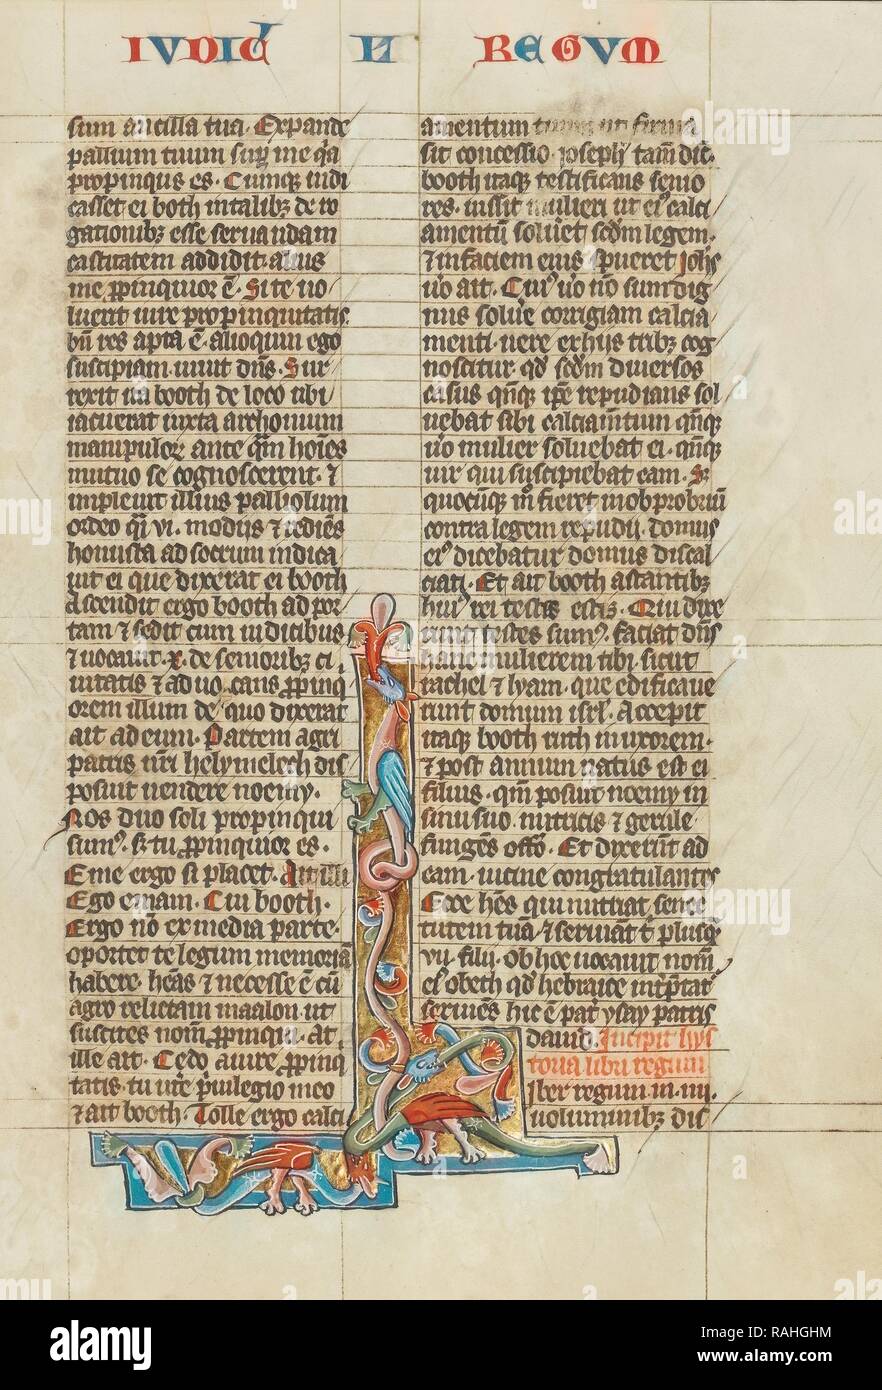 IUDIC II REGUM
sum ancilla tua. Expande
pallium tuum sup me q̃a
propinqus es. Cumq; iudi
casset ei both in talib; de ro
gationib; esse seruandam
castitatem addidit. alius
me ppinquior ē. Si te uo
luerit iure propinquitatis.
bñ res apta ē. alioquin ego
suscipiam. uiuit dñs. Sur
rexit ita booth de loco ubi
iacuerat iuxta archonium
manipulor ante qm hoĩes
mutuo se cognoscerent. ⁊
impleuit illius palliolum
ordeo q̃i vi. modijs ⁊ rediẽs
honusta ad socrum indica
uit ei que dixerat ei booth
Ascendit ergo booth ad por
tam ⁊ sedit cum iudicibus
⁊ uocauit .x. de seniorib; ci
uitatis ⁊ aduocans ppinq
orem illum de quo dixerat
ait ad eum. Partem agri
patris nr̃i helymelech dis
posuit uendere noemy.
Nos duo soli propinqui
sum᾽. s; tu ppinquior es.
Eme ergo si placet. At illi
Ego emam. Cui booth.
Ergo nõ ex media parte.
oportet te legum memoriã
habere. hẽas ⁊ necesse ē cũ
agro relictam maalon. ut
suscites nom̃ ppinqui. At
ille ait. Cedo a iure ppinq
tatis. tu ut̃e p̃uilegio meo
⁊ ait booth. Tolle ergo calci
amentum ut firma
sit concessio. ioseph tam̃ dic.
booth itaq; testificans senio
res. iussit mulieri ut ei᾽ calci
amentũ solueret scdm legem.
⁊ in faciem eius spueret
uo ait. Cui᾽ uo nõ sum dig
nus soluẽ corrigiam calcia
menti. uere ex hijs trib; cog
noscitur. qd scdm diuersos
casus qñq; ipẽ repudians sol
uebat sibi calciam̃tum qñq;
uo mulier soluebat ei. qñq;
uir qui suscipiebat eam. S;
quocũq; m̃ fieret in obprobriũ
contra legem repudij. domus
ei᾽ dicebatur domus discal
ciati. Et ait booth astantib;
hui᾽ rei testes estis. Qui dixe
runt testes sum᾽. faciat dñs
hanc mulierem tibi. sicut
rachel ⁊ lyam. que edificaue
runt domum isrl. Accepit
itaq; booth ruth in uxorem.
⁊ post annum natus est ei
filius. qm̃ posuit noemy in
sinu suo. nutricis ⁊ gerule
fungẽs offo. Et dixerũt ad
eam. uicine congratulantes
Ecce hẽs qui nutriat senec
tutem tuã. ⁊ seruiant t̃ plusq̃
vii. filij. ob hoc uocauit nom̃
ei᾽ obeth qd hebraice int̃ptat
seruiẽs hic ē pat̃ ysay patris
dauid. Incipit hys
toria libri regum
iber regum in .iiij.
uoluminib; dis
alamy
alamy stock photo
RAHGHM
www.alamy.com